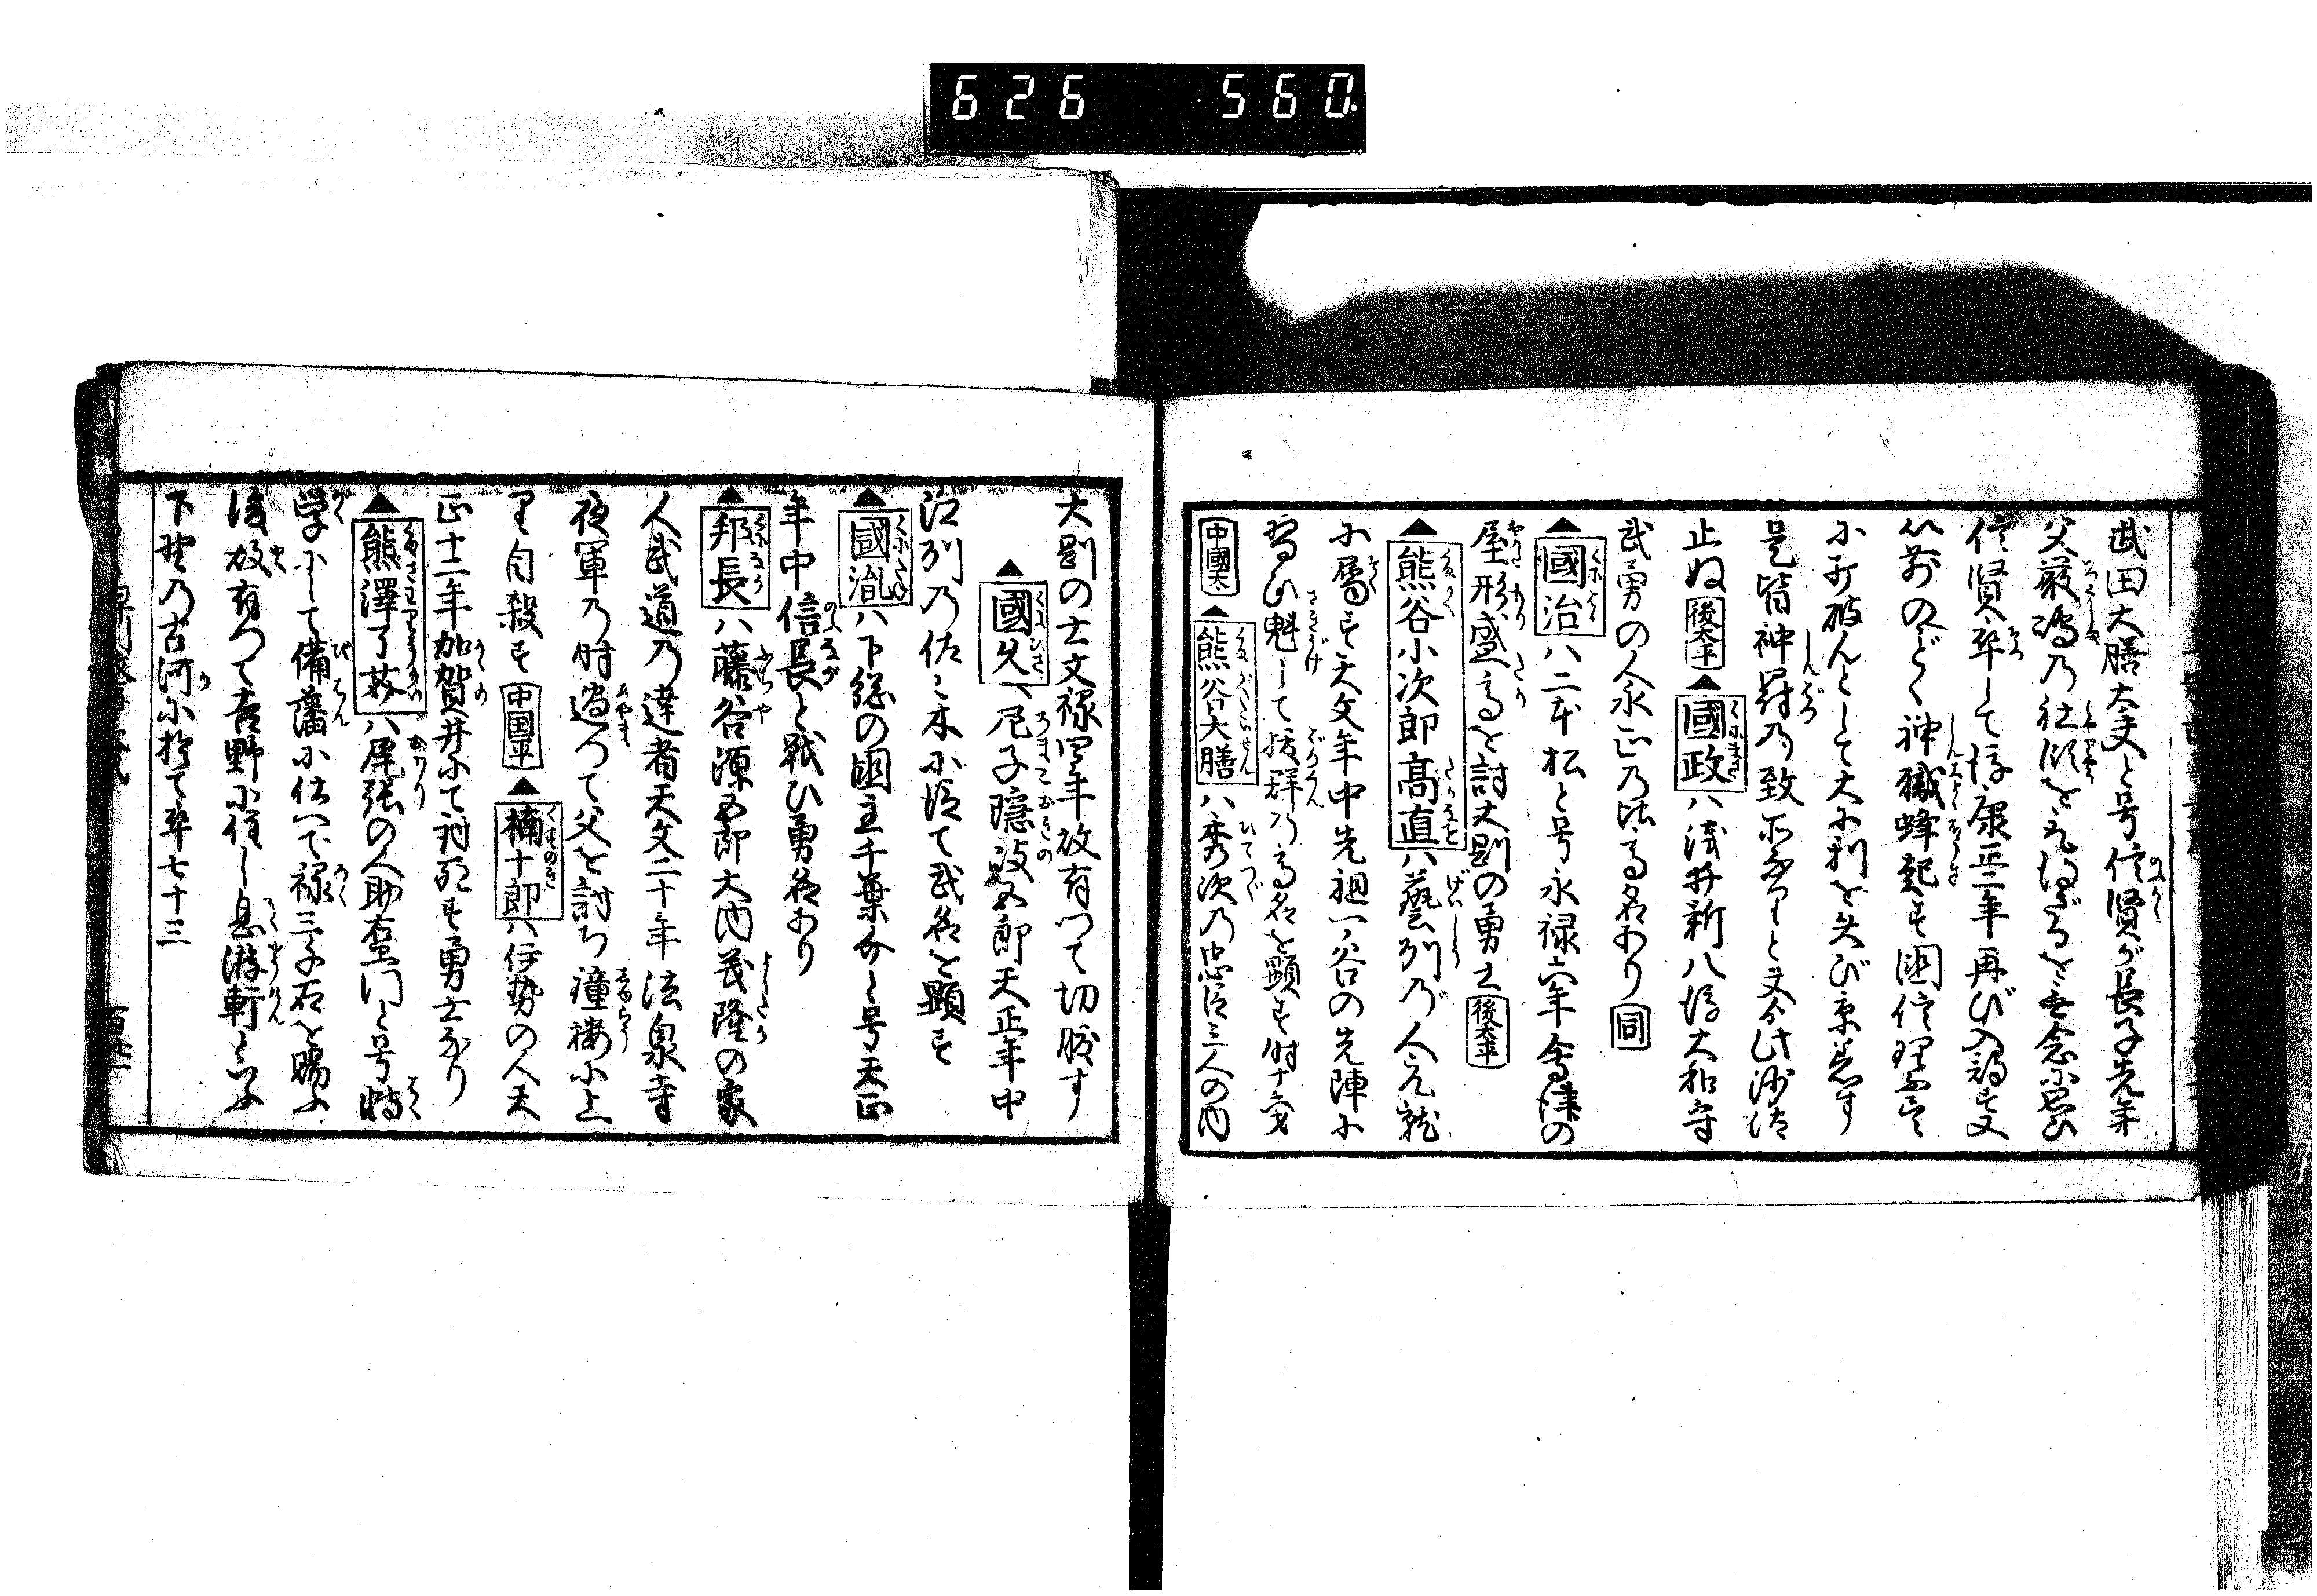 626 560
武田大膳太夫と号信賢が長子先年
父厳島の社領を
信賢卒して後康正二年再び入 す又
以前のごく神職蜂起す国信
に打破んとして大に利を失び 
是皆神罸乃致所なりと 此沙汰
止ぬ 後太平 ▲國政ハ浅井新八後大和守
武勇の人永正乃 名あり 同
▲國治ハ二本松と号永禄六年會津の
屋形盛高を討大剛の勇士 後太平
▲熊谷小次郎高直ハ藝州乃人元就
に属す天文年中先祖一ノ谷の先陣に
習ひ魁して抜群乃高名を顕す時十六才
中國太 ▲熊谷大膳ハ秀次乃忠臣三人の内
大剛の士文禄四年故有つて切腹す
▲國久ハ尼子隠岐五郎天正年中
江州乃佐々木に 武名を顕す
▲國胤ハ下総の国主千葉介と号天正
年中信長と戦ひ勇名あり
▲邦長ハ藤谷源五郎大内義隆の家
人武道乃達者天文二十年法泉寺
夜軍乃時過つて父を討ち鐘楼に上
り自殺す 中国平 ▲楠十郎ハ伊勢の人天
正十二年加賀井にて討死す勇士なり
▲熊澤了芥ハ尾張の人助右衛門と号博
学にして備藩に仕へて禄三千石を賜ふ
後故有つて吉野に住し息游軒と云ふ
下野乃古河に於て卒七十三